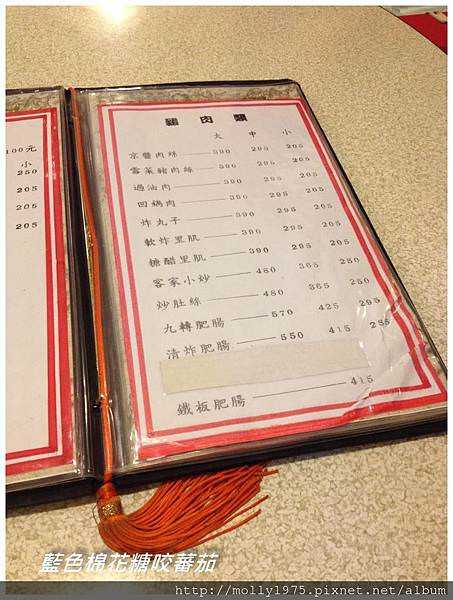 100元
小
250
205
205
205
肉 類
大 中 小
京醬肉絲 —— 390 295 205
雪菜豬肉絲 —— 390 295 205
過油肉 —— 390 295 205
回鍋肉 —— 390 295 205
炸丸子 —— 390 295 205
軟炸里肌 —— 390 295 205
糖醋里肌 —— 390 295 205
客家小炒 —— 480 365 250
炒肚絲 —— 480 365 250
九轉肥腸 —— 570 425 295
清炸肥腸 —— 550 415 285
鐵板肥腸 —— 415
藍色棉花糖咬蕃茄
http://molly1975.pixnet.net/album